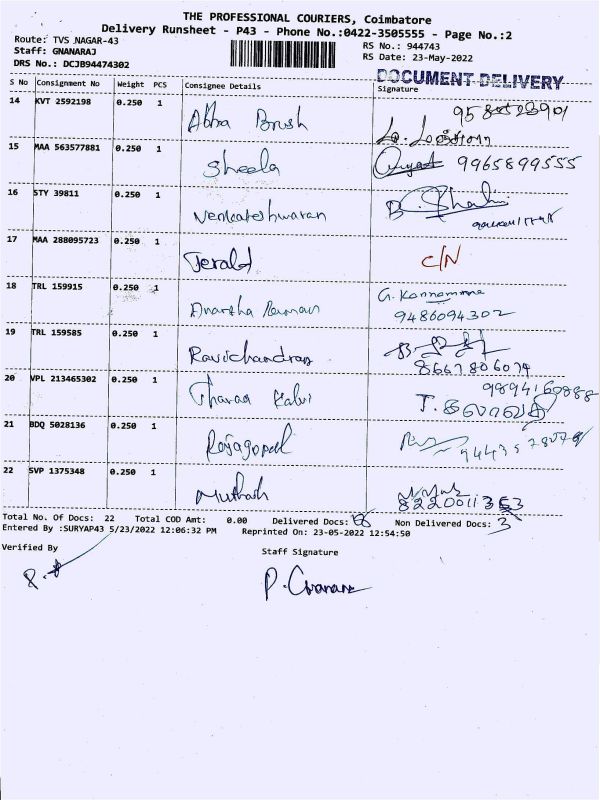 THE PROFESSIONAL COURIERS, Coimbatore
Delivery Runsheet - P43 - Phone No.:0422-3505555 - Page No.:2
Route: TVS NAGAR-43
RS No.: 944743
Staff: GNANARAJ
RS Date: 23-May-2022
DRS No.: DCJB94474302
DOCUMENT DELIVERY
S No Consignment No Weight PCS Consignee Details Signature
14 KVT 2592198 0.250 1 Abba Brush
15 MAA 563577881 0.250 1 Sheela 9965899555
16 STY 39811 0.250 1 Venkateshwaran B. Shalini
17 MAA 288095723 0.250 1 Jerald C/N
18 TRL 159915 0.250 1 G. Kannamma
9486094302
19 TRL 159585 0.250 1 Ravichandran
8667806074
20 VPL 213465302 0.250 1 9894160888
T. கலாவதி
21 BDQ 5028136 0.250 1 Rajagopal
22 SVP 1375348 0.250 1
8220011363
Total No. Of Docs: 22 Total COD Amt: 0.00 Delivered Docs: Non Delivered Docs: 3
Entered By :SURYAP43 5/23/2022 12:06:32 PM Reprinted On: 23-05-2022 12:54:50
Verified By
Staff Signature